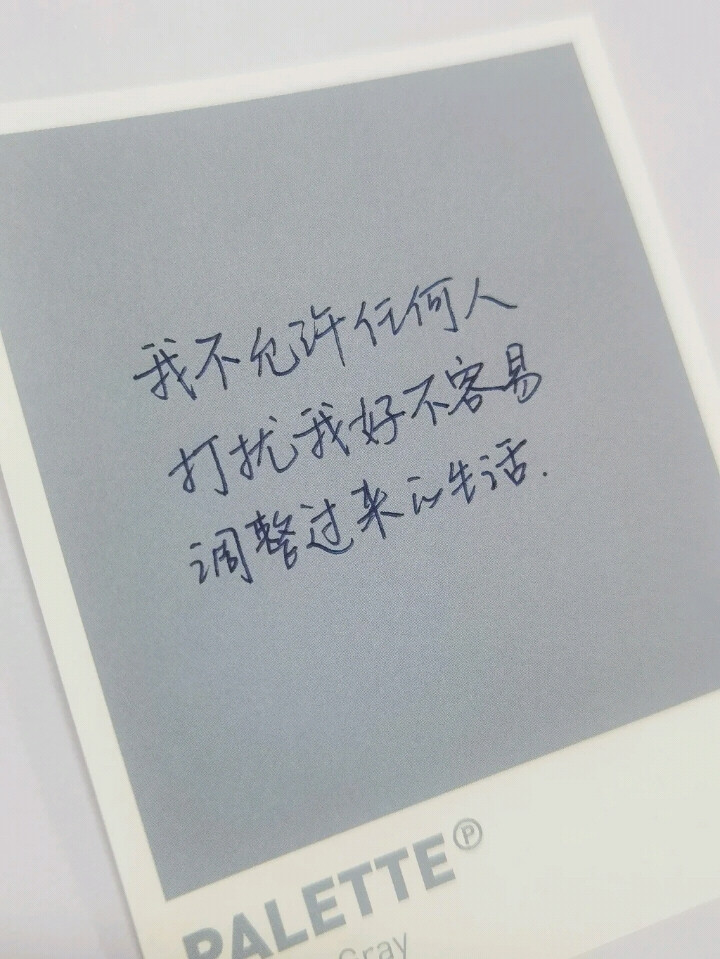 我不允许任何人
打扰我好不容易
调整过来的生活.
PALETTE Ⓟ
Gray